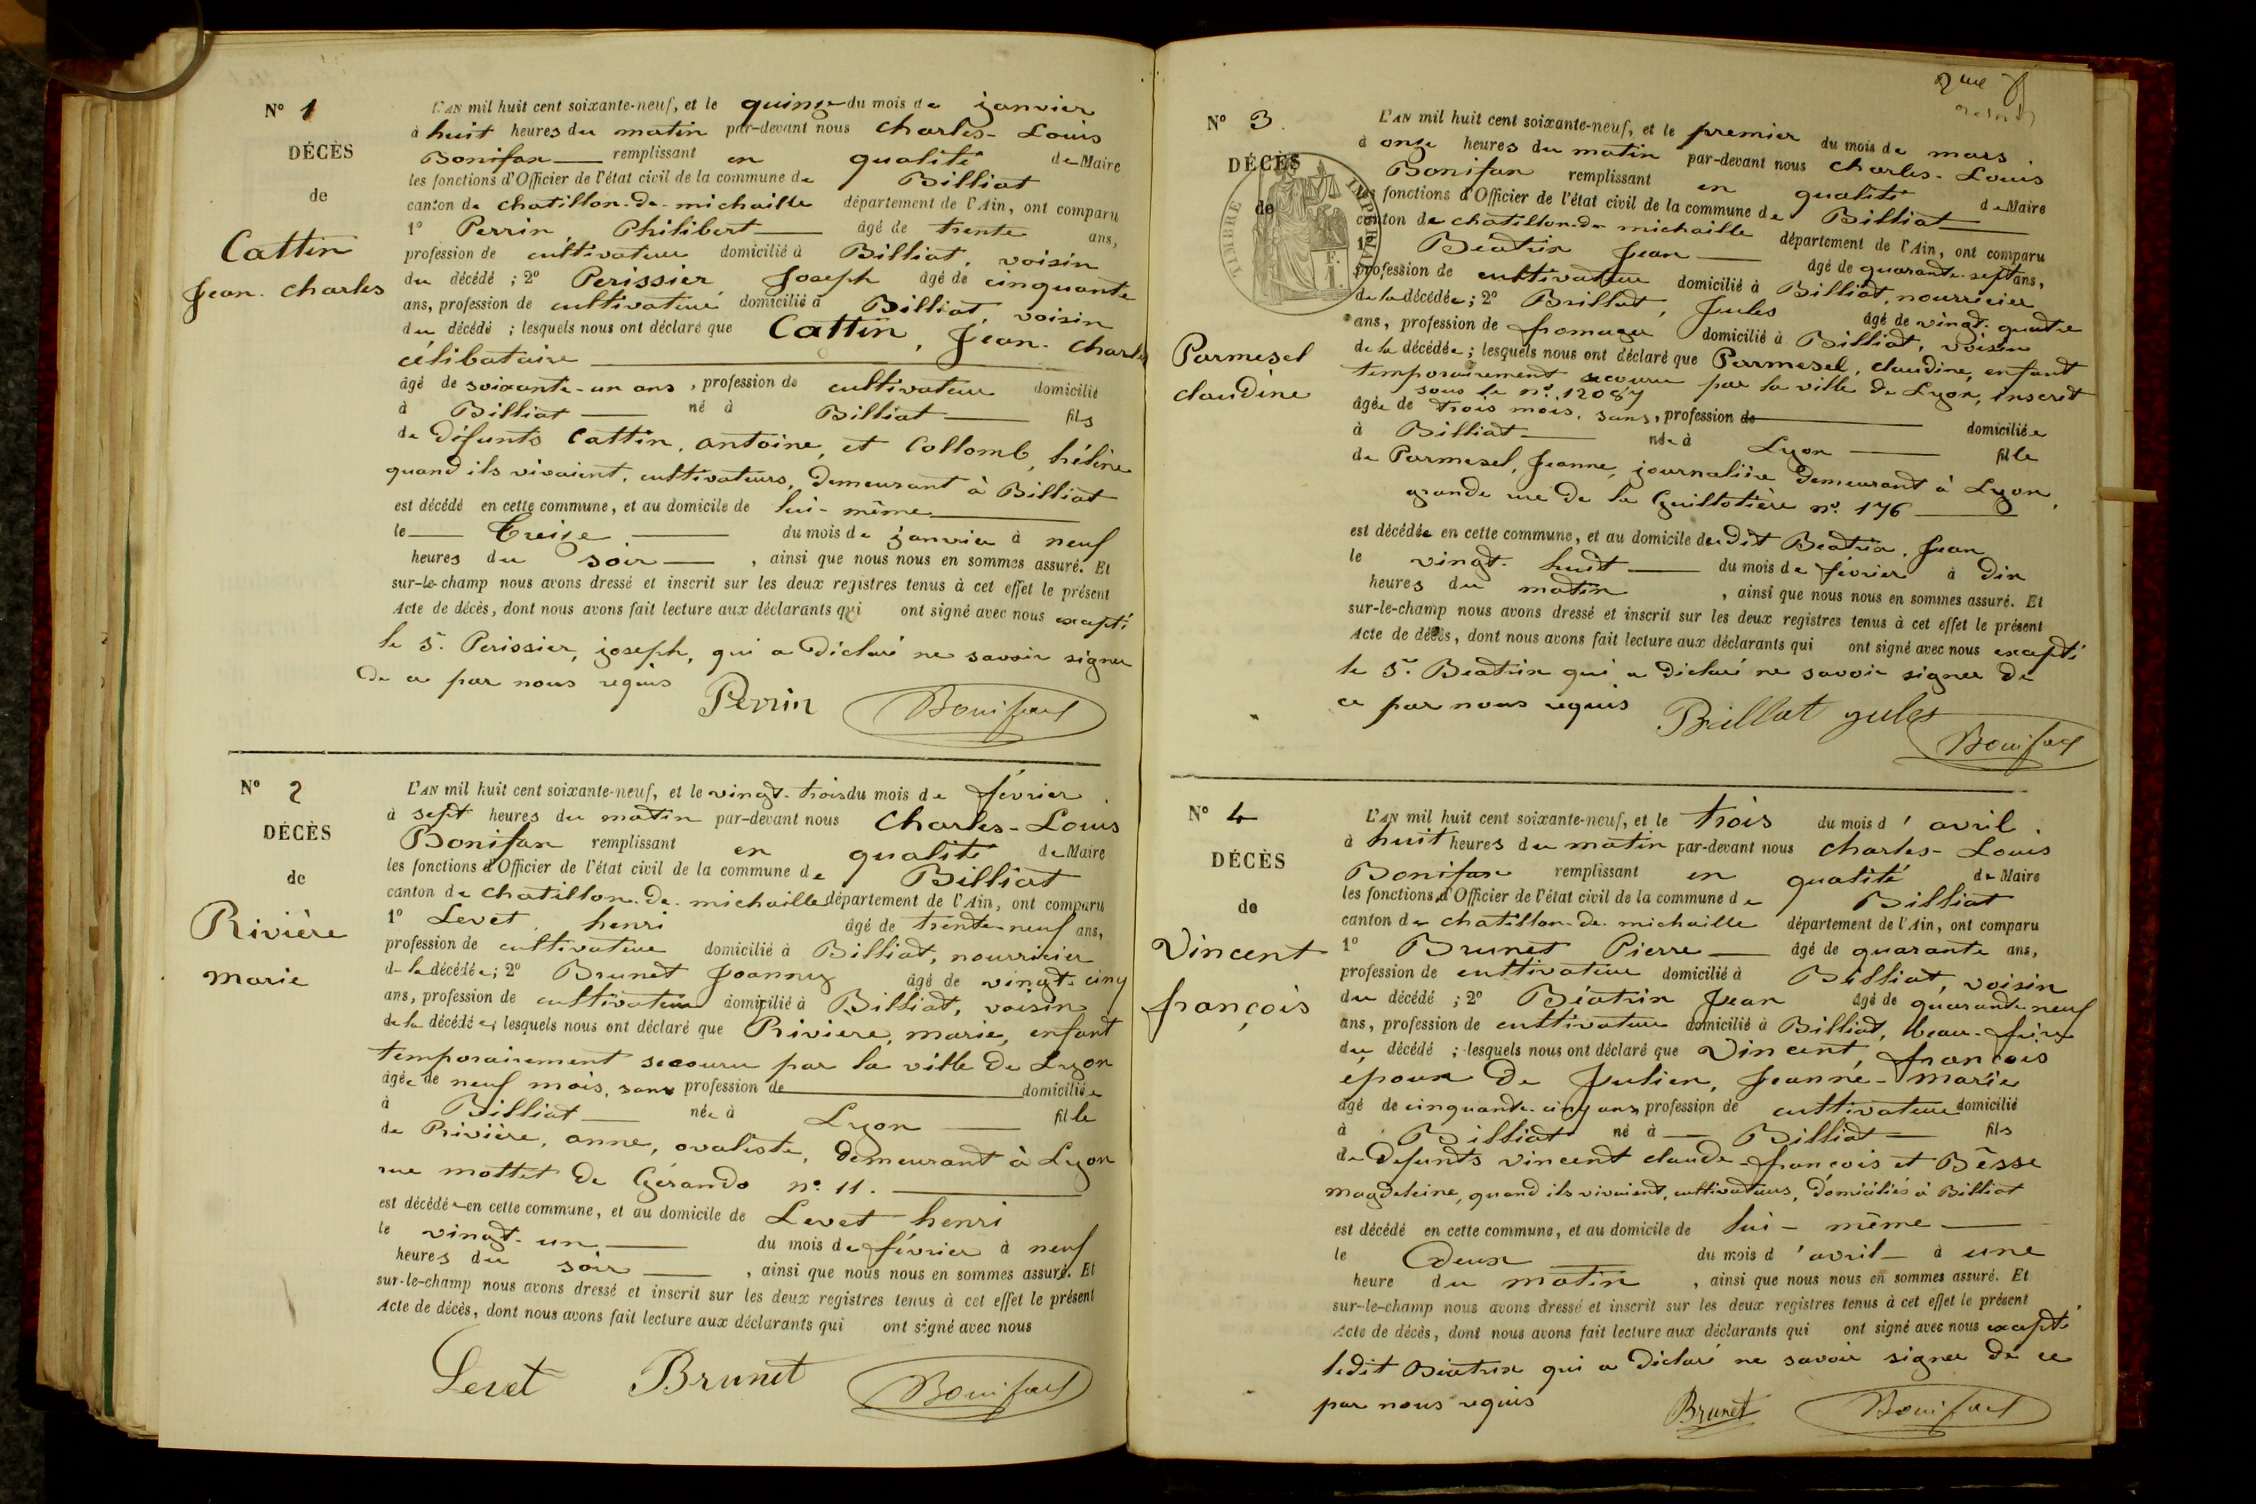 N° 1
DÉCÈS
de
Cattin
Jean. Charles
L'AN mil huit cent soixante-neuf, et le quinze du mois de janvier
à huit heures du matin par-devant nous Charles-Louis
Bonifax remplissant en qualité de Maire
les fonctions d'Officier de l'état civil de la commune de Billiat
canton de chatillon-de-michaille département de l'Ain, ont comparu
1° Perrin, Philibert âgé de trente ans,
profession de cultivateur domicilié à Billiat, voisin
du décédé ; 2° Perissier, Joseph âgé de cinquante
ans, profession de cultivateur domicilié à Billiat, voisin
du décédé ; lesquels nous ont déclaré que Cattin, Jean-Charles
célibataire
âgé de soixante-un ans, profession de cultivateur domicilié
à Billiat né à Billiat fils
de défunts Cattin, antoine, et Collomb, hélène
quand ils vivaient, cultivateurs, demeurant à Billiat
est décédé en cette commune, et au domicile de lui-même
le Treize du mois de janvier à neuf
heures du soir, ainsi que nous nous en sommes assuré. Et
sur-le-champ nous avons dressé et inscrit sur les deux registres tenus à cet effet le présent
Acte de décès, dont nous avons fait lecture aux déclarants qui ont signé avec nous excepté
le Sr. Perissier, joseph, qui a déclaré ne savoir signer
de ce par nous requis
Perrin Bonifax
N° 2
DÉCÈS
de
Rivière
marie
L'AN mil huit cent soixante-neuf, et le vingt-trois du mois de février
à sept heures du matin par-devant nous Charles-Louis
Bonifax remplissant en qualité de Maire
les fonctions d'Officier de l'état civil de la commune de Billiat
canton de chatillon-de-michaille département de l'Ain, ont comparu
1° Levet, henri âgé de trente-neuf ans,
profession de cultivateur domicilié à Billiat, nourricier
de la décédée ; 2° Brunet Joanny âgé de vingt-cinq
ans, profession de cultivateur domicilié à Billiat, voisin
de la décédée ; lesquels nous ont déclaré que Rivière, marie, enfant
temporairement secouru par la ville de Lyon
âgée de neuf mois, sans profession de domiciliée
à Billiat née à Lyon fille
de Rivière, anne, ovaliste, demeurant à Lyon
rue mottet de Gérando n° 11.
est décédée en cette commune, et au domicile de Levet henri
le vingt-un du mois de février à neuf
heures du soir, ainsi que nous nous en sommes assuré. Et
sur-le-champ nous avons dressé et inscrit sur les deux registres tenus à cet effet le présent
Acte de décès, dont nous avons fait lecture aux déclarants qui ont signé avec nous
Levet Brunet Bonifax
2me
N° 3.
DÉCÈS
de
TIMBRE IMPÉRIAL
Parmesel
claudine
L'AN mil huit cent soixante-neuf, et le premier du mois de mars
à onze heures du matin par-devant nous Charles-Louis
Bonifax remplissant en qualité de Maire
les fonctions d'Officier de l'état civil de la commune de Billiat
canton de chatillon-de-michaille département de l'Ain, ont comparu
1° Béatrix Jean âgé de quarante-sept ans,
profession de cultivateur domicilié à Billiat, nourricier
de la décédée ; 2° Brillat, Jules âgé de vingt-quatre
ans, profession de fromager domicilié à Billiat, voisin
de la décédée ; lesquels nous ont déclaré que Parmesel, claudine, enfant
temporairement secouru par la ville de Lyon, inscrit
sous le n° 12087
âgée de trois mois, sans, profession de domiciliée
à Billiat née à Lyon fille
de Parmesel, Jeanne, journalière demeurant à Lyon,
grande rue de la Guillotière n° 176
est décédée en cette commune, et au domicile dudit Beatrix, Jean
le vingt-huit du mois de février à dix
heures du matin, ainsi que nous nous en sommes assuré. Et
sur-le-champ nous avons dressé et inscrit sur les deux registres tenus à cet effet le présent
Acte de décès, dont nous avons fait lecture aux déclarants qui ont signé avec nous excepté
le Sr. Beatrix qui a déclaré ne savoir signer de
ce par nous requis
Brillat jules Bonifax
N° 4
DÉCÈS
de
Vincent
françois
L'AN mil huit cent soixante-neuf, et le trois du mois d'avril
à huit heures du matin par-devant nous Charles-Louis
Bonifax remplissant en qualité de Maire
les fonctions d'Officier de l'état civil de la commune de Billiat
canton de chatillon-de-michaille département de l'Ain, ont comparu
1° Brunet Pierre âgé de quarante ans,
profession de cultivateur domicilié à Billiat, voisin
du décédé ; 2° Béatrix Jean âgé de quarante-neuf
ans, profession de cultivateur domicilié à Billiat, beau-frère
du décédé ; lesquels nous ont déclaré que Vincent, françois
époux de Julien, Jeanne-Marie
âgé de cinquante-cinq ans, profession de cultivateur domicilié
à Billiat né à Billiat fils
de défunts Vincent claude-françois et Besse
magdeleine, quand ils vivaient, cultivateurs, domiciliés à Billiat
est décédé en cette commune, et au domicile de lui-même
le Deux du mois d'avril à une
heure du matin, ainsi que nous nous en sommes assuré. Et
sur-le-champ nous avons dressé et inscrit sur les deux registres tenus à cet effet le présent
Acte de décès, dont nous avons fait lecture aux déclarants qui ont signé avec nous excepté
ledit Béatrix qui a déclaré ne savoir signer de ce
par nous requis
Brunet Bonifax